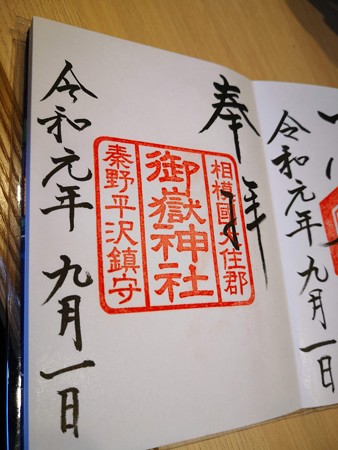 奉拝
相模國大住郡
御嶽神社
秦野平沢鎮守
令和元年九月一日
令和元年九月一日